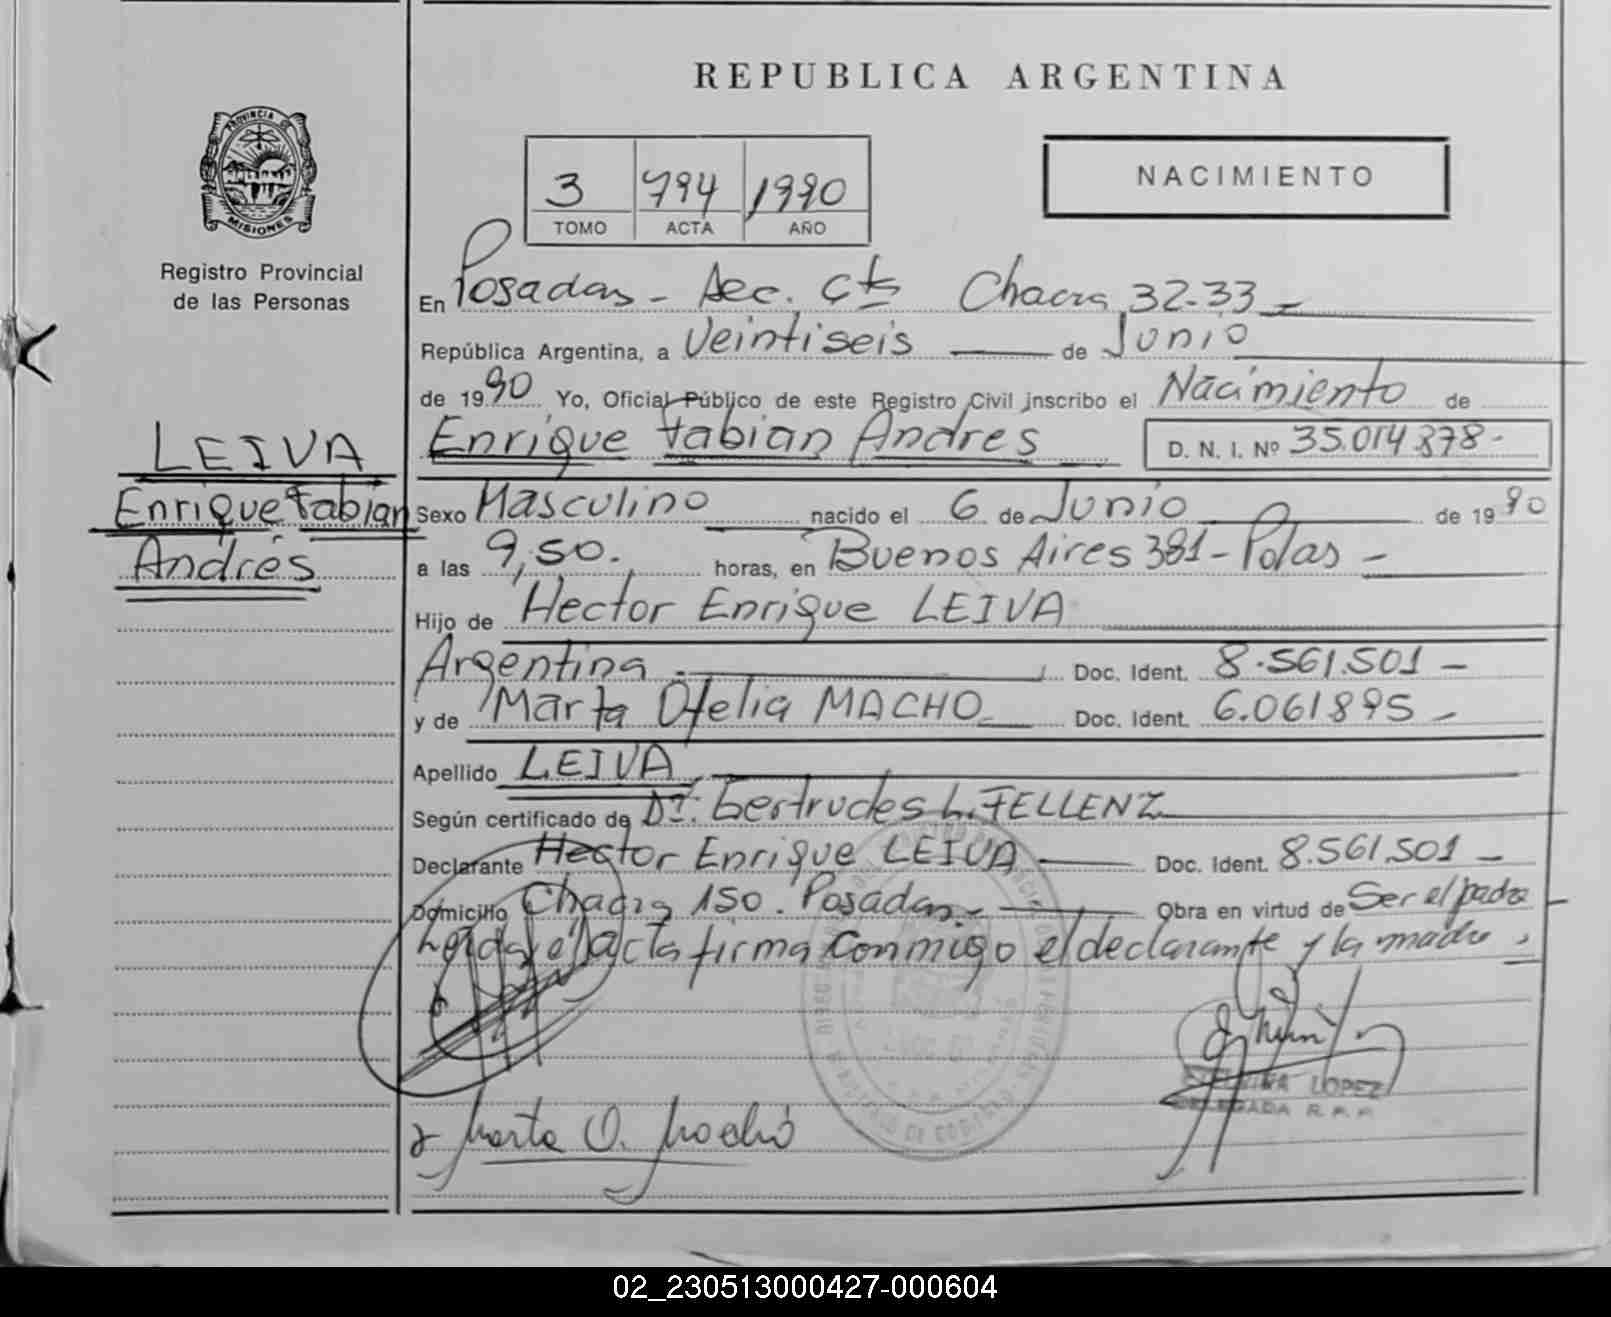 REPUBLICA ARGENTINA
PROVINCIA DE
MISIONES
Registro Provincial
de las Personas
3 794 1990
TOMO ACTA AÑO
NACIMIENTO
En Posadas - Sec. Cta Chacra 32-33 -
República Argentina, a Veintiseis de Junio
de 1990 Yo, Oficial Público de este Registro Civil inscribo el Nacimiento de
Enrique Fabian Andres D. N. I. Nº 35.014.878-
LEIVA
Enrique Fabian
Andrés
Sexo Masculino nacido el 6 de Junio de 1990
a las 9,50. horas, en Buenos Aires 381 - Pdas -
Hijo de Hector Enrique LEIVA
Argentina Doc. Ident. 8.561.501 -
y de Marta Ofelia MACHO Doc. Ident. 6.061895 -
Apellido LEIVA
Según certificado de Dra. Gertrudes L. FELLENZ
Declarante Hector Enrique LEIVA Doc. Ident. 8.561.501 -
Domicilio Chacra 150. Posadas - Obra en virtud de Ser el padre -
Leida el acta firma conmigo el declarante y la madre.
LOPEZ
DELEGADA R. P. P.
Marta O. Macho
02_230513000427-000604